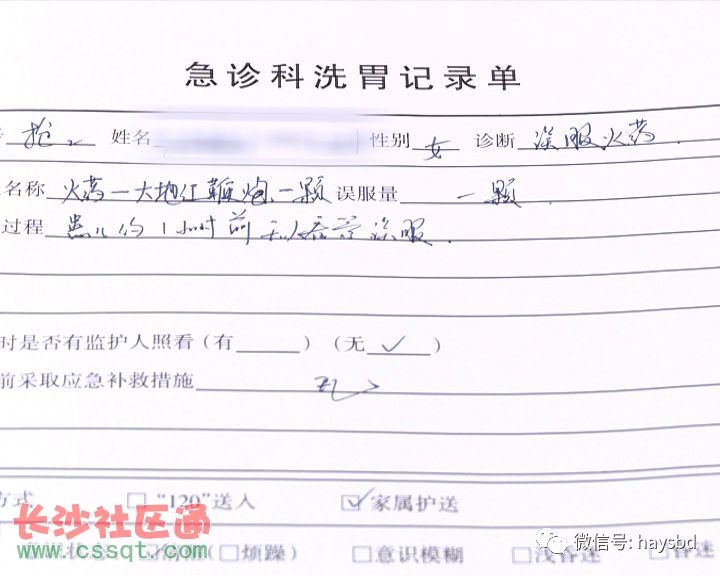 急诊科洗胃记录单
抢2 姓名 性别 女 诊断 误服火药.
名称 火药一大地红鞭炮、一颗 误服量 一颗.
过程 患儿约1小时前无人看管误服.
时是否有监护人照看(有 )(无 ✓ )
前采取应急补救措施 无
方式 □“120”送人 ☑家属护送
(□烦躁) □意识模糊 □浅昏迷 昏迷
长沙社区通
www.cssqt.com
微信号: haysbd